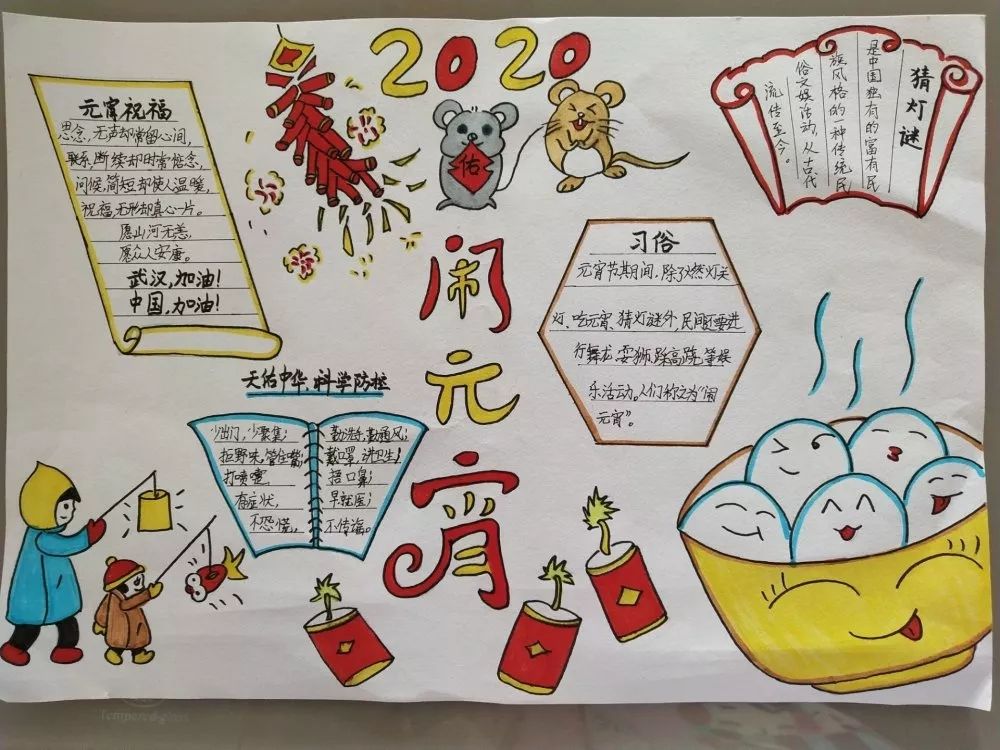 2020
佑
闹元宵
元宵祝福
思念，无声却常留心间，
联系，断续却时常惦念，
问候，简短却使人温暖，
祝福，无形却真心一片。
愿山河无恙，
愿众人安康。
武汉，加油！
中国，加油！
猜灯谜
是中国独有的富有民
族风格的一种传统民
俗文娱活动，从古代
流传至今。
习俗
元宵节期间，除了燃灯关
灯、吃元宵、猜灯谜外，民间还要进
行舞龙、耍狮、踩高跷等娱
乐活动。人们称之为“闹
元宵”。
天佑中华，科学防控
少出门，少聚集；
拒野味，管住嘴；
打喷嚏，
有症状，
不恐慌，
勤洗手，勤通风；
戴口罩，讲卫生！
捂口鼻；
早就医；
不传谣。
Tempered glass